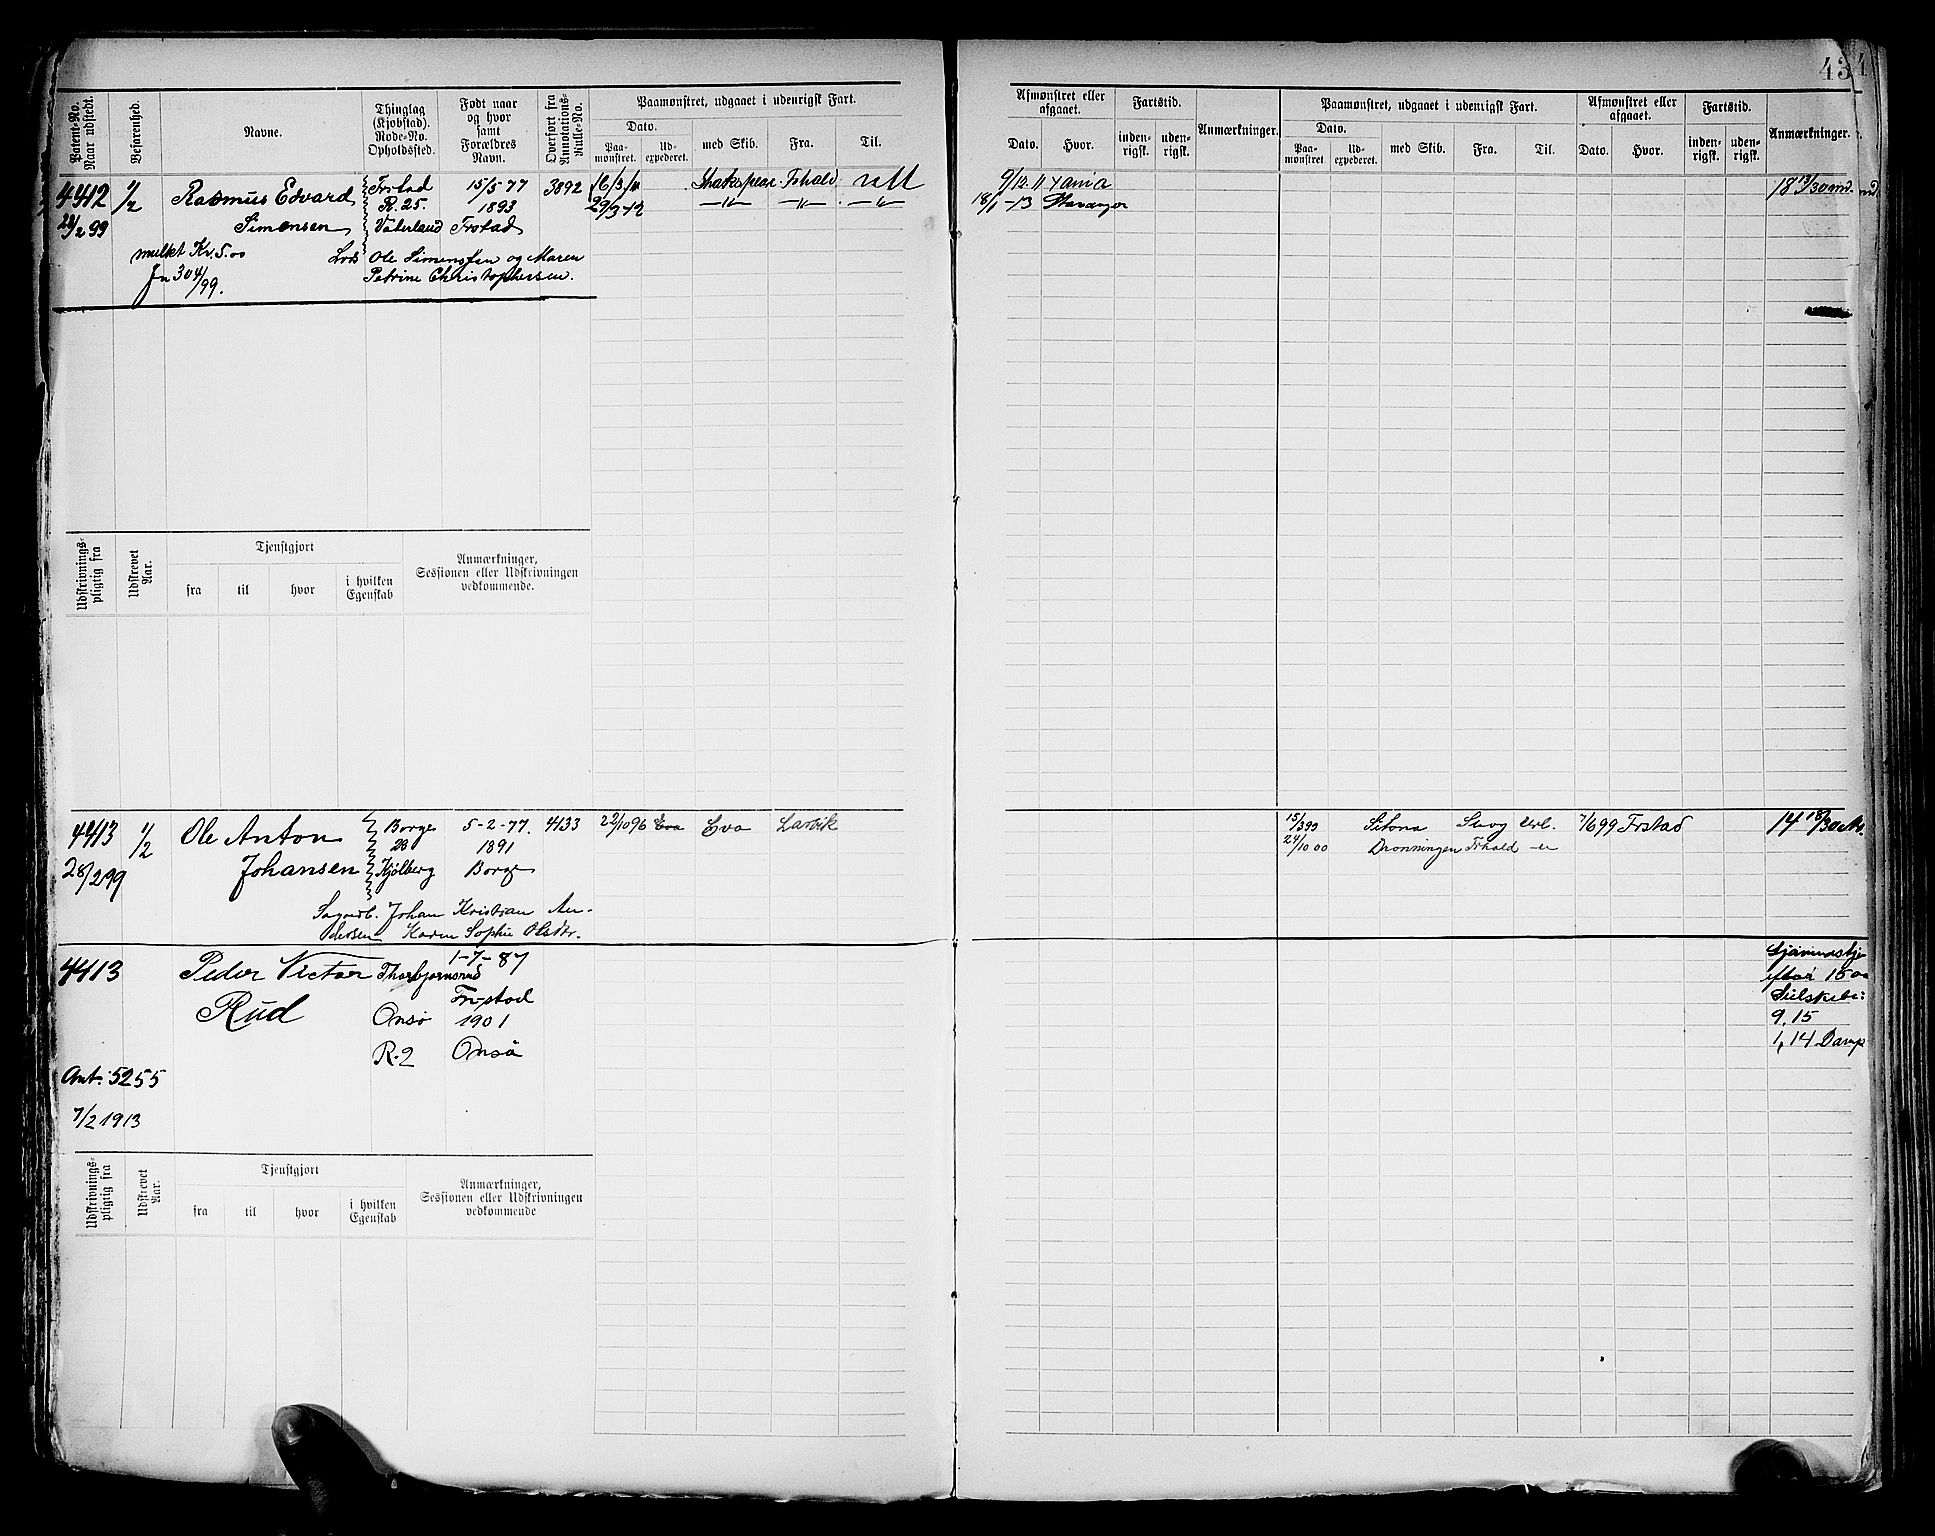 43
Patent-No. Naar udstedt.
Befarenhed.
Navne.
Thinglag (Kjøbstad). Rode-No. Opholdssted.
Født naar og hvor samt Forældres Navn.
Overført fra Annotations-Rulle-No.
Paamønstret, udgaaet i udenrigsk Fart.
Dato.
Paamønstret.
Udexpederet.
med Skib.
Fra.
Til.
Afmønstret eller afgaaet.
Dato.
Hvor.
Fartstid.
indenrigsk.
udenrigsk.
Anmærkninger.
Paamønstret, udgaaet i udenrigsk Fart.
Dato.
Paamønstret.
Udexpederet.
med Skib.
Fra.
Til.
Afmønstret eller afgaaet.
Dato.
Hvor.
Fartstid.
indenrigsk.
udenrigsk.
Anmærkninger.
4412 1/2 Rasmus Edvard Frstad 15/5-77 3892 16/3/11 Shakespear Fshald 9/12 11 18 13/30 md.
28/2 99 Simensen R. 25. 1893 29/3-12 —"— —"— —"— 18/1-13 Stavanger
Vaterland Frstad
mulkt Kr. 5.00 Lods Ole Simensen og Maren
Jn 304/99. Petrine Christophersen.
Udskrivningspligtig fra
Udskrevet Aar.
Tjenstgjort
fra
til
hvor
i hvilken Egenskab
Anmærkninger, Sessionen eller Udskrivningen vedkommende.
4413 1/2 Ole Anton Borge 5-2-77. 4133 22/10 96 Eva Eva Larvik 15/3 99 Sitona Skog 7/6 99 Frstad 14 18/30
28/2 99 Johansen 28 1891 24/10 00 Dronningen Frhald
Kjölberg Borge
Sagarb. Johan Kristian An-
dersen Karen Sophie Olsdtr.
4413 Peder Victor Thorbjørnsrød 1-7-87
Rud Frstad
Onsø 1901
R-2 Onsø
Ant: 5255
7/2 1913
9,15
1,14 Damp
Udskrivningspligtig fra
Udskrevet Aar.
Tjenstgjort
fra
til
hvor
i hvilken Egenskab
Anmærkninger, Sessionen eller Udskrivningen vedkommende